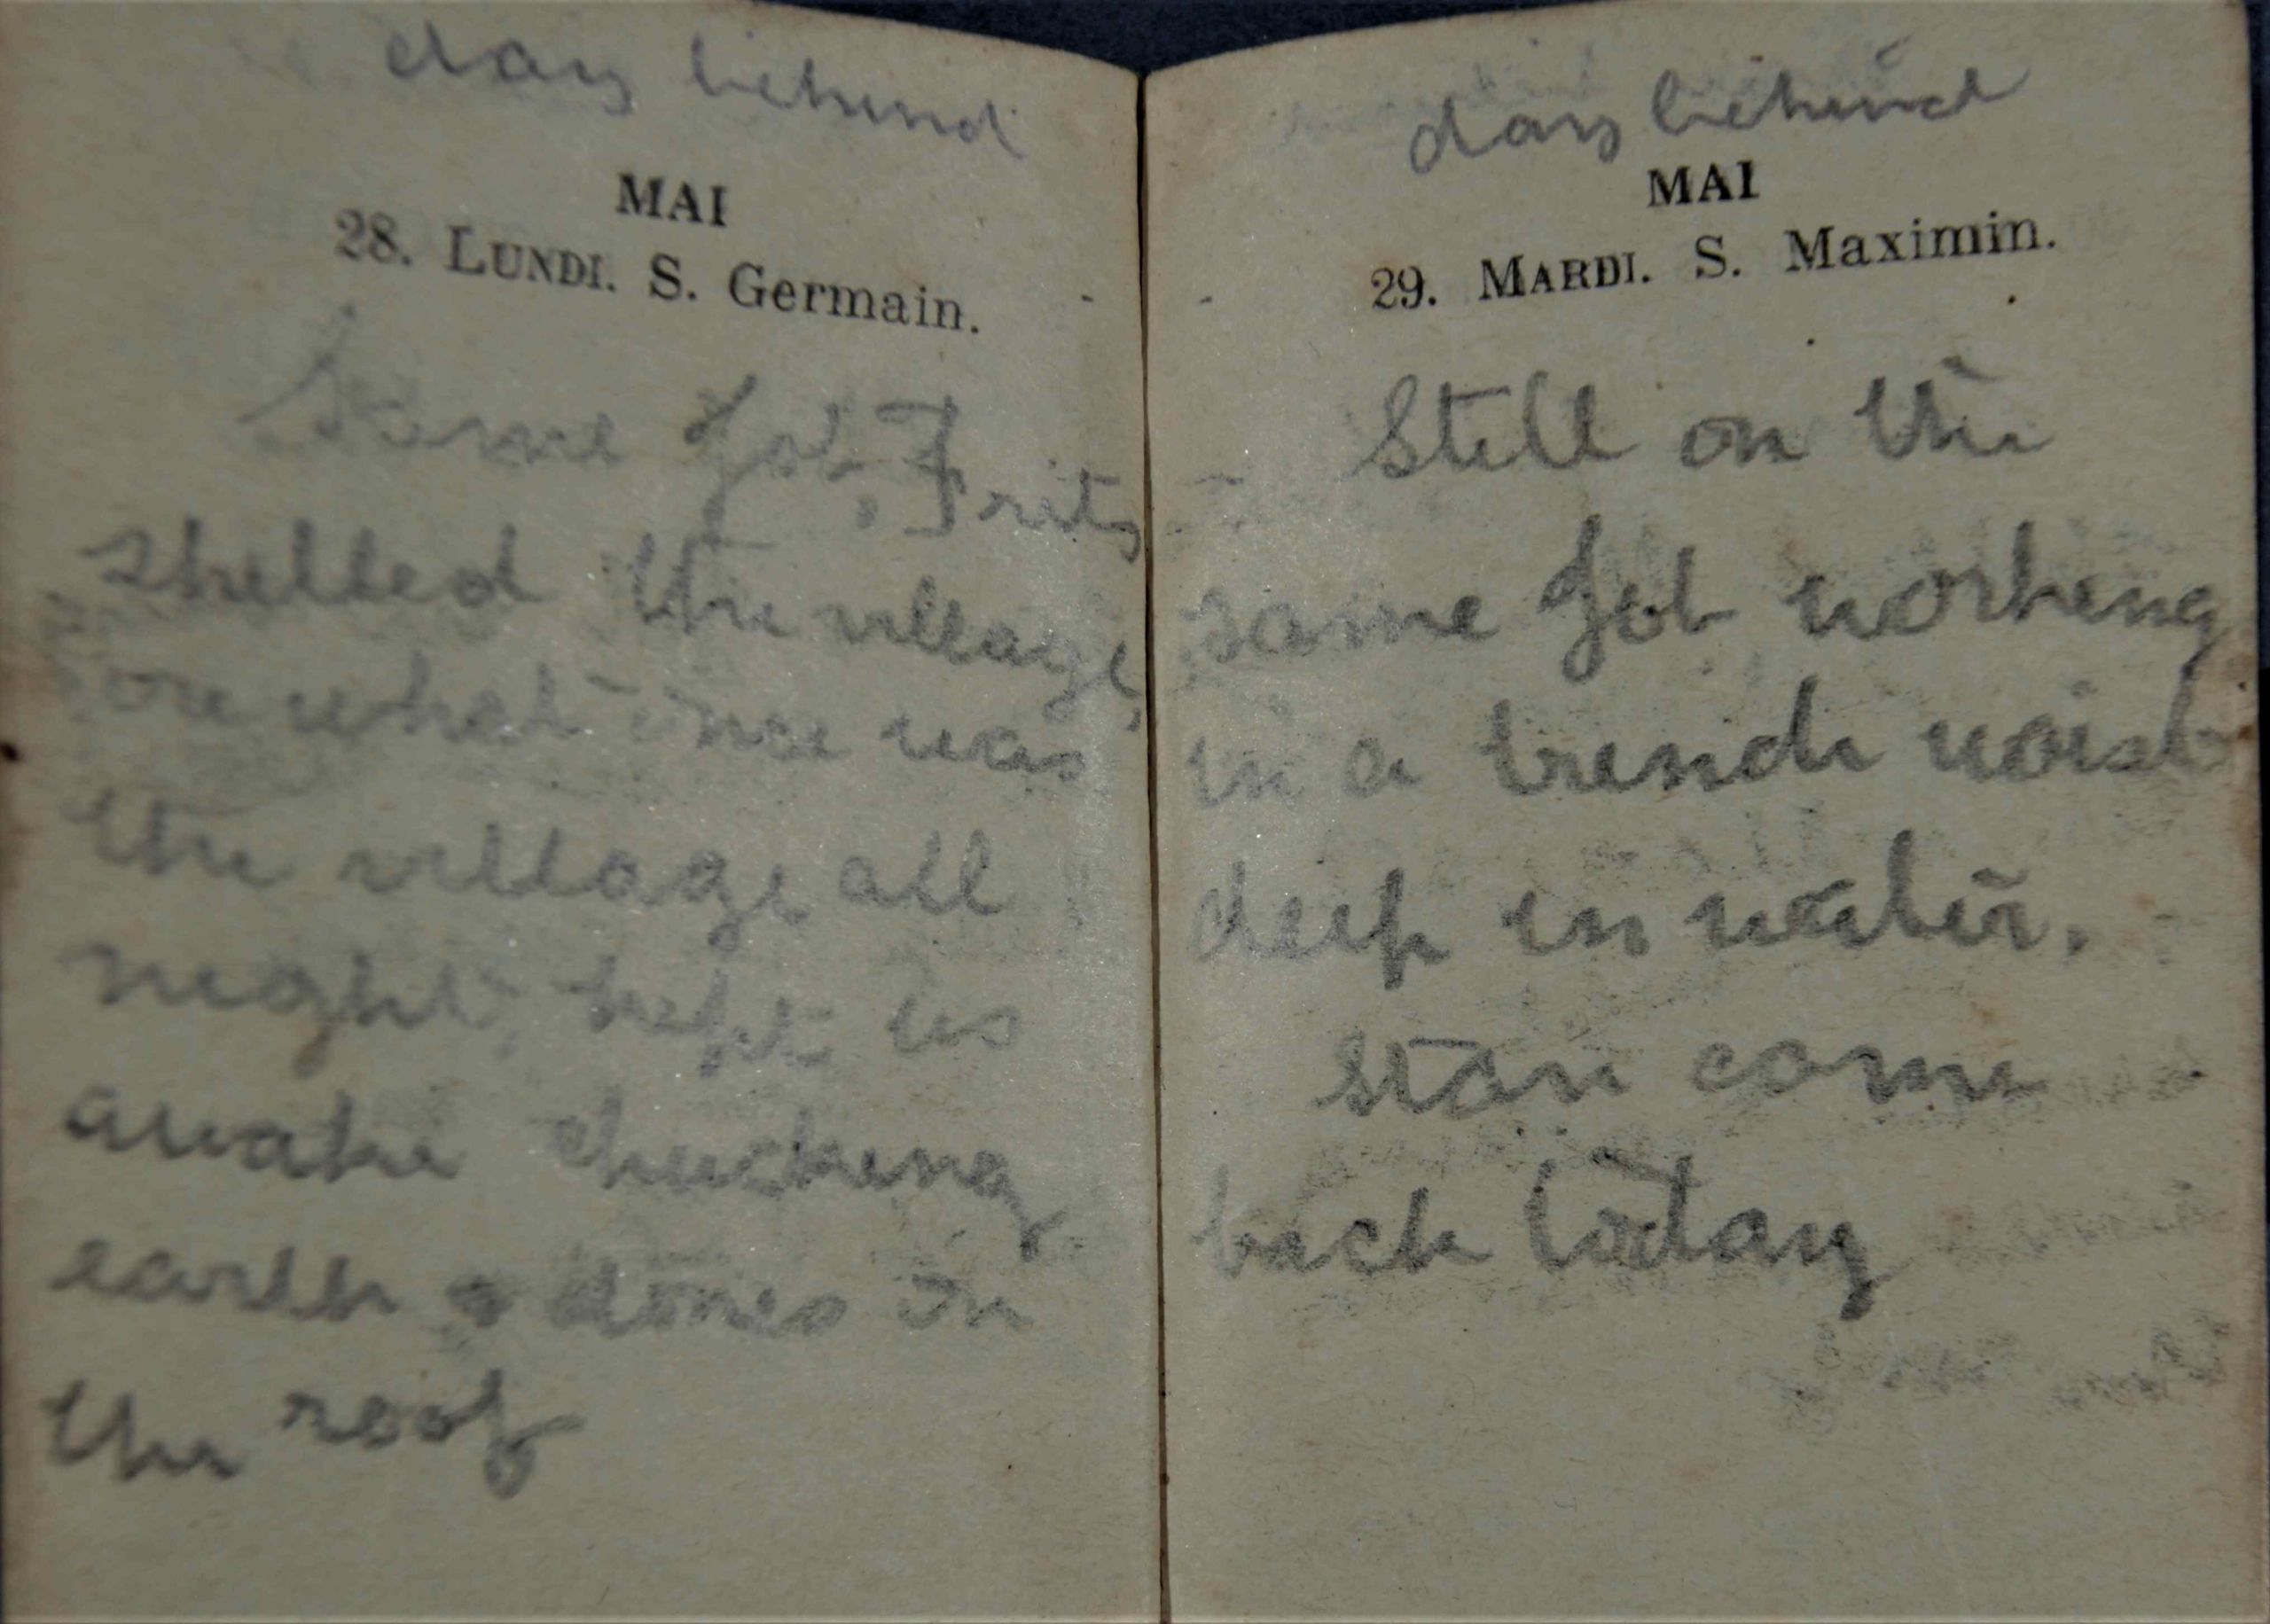 day behind
MAI
28. LUNDI. S. Germain.
Same Job, Fritz
shelled the village,
or what once was
the village all
night, kept us
awake chucking
earth & stones on
the roof
day behind
MAI
29. MARDI. S. Maximin.
Still on the
same Job working
in a trench waist
deep in water.
Stan come
back today